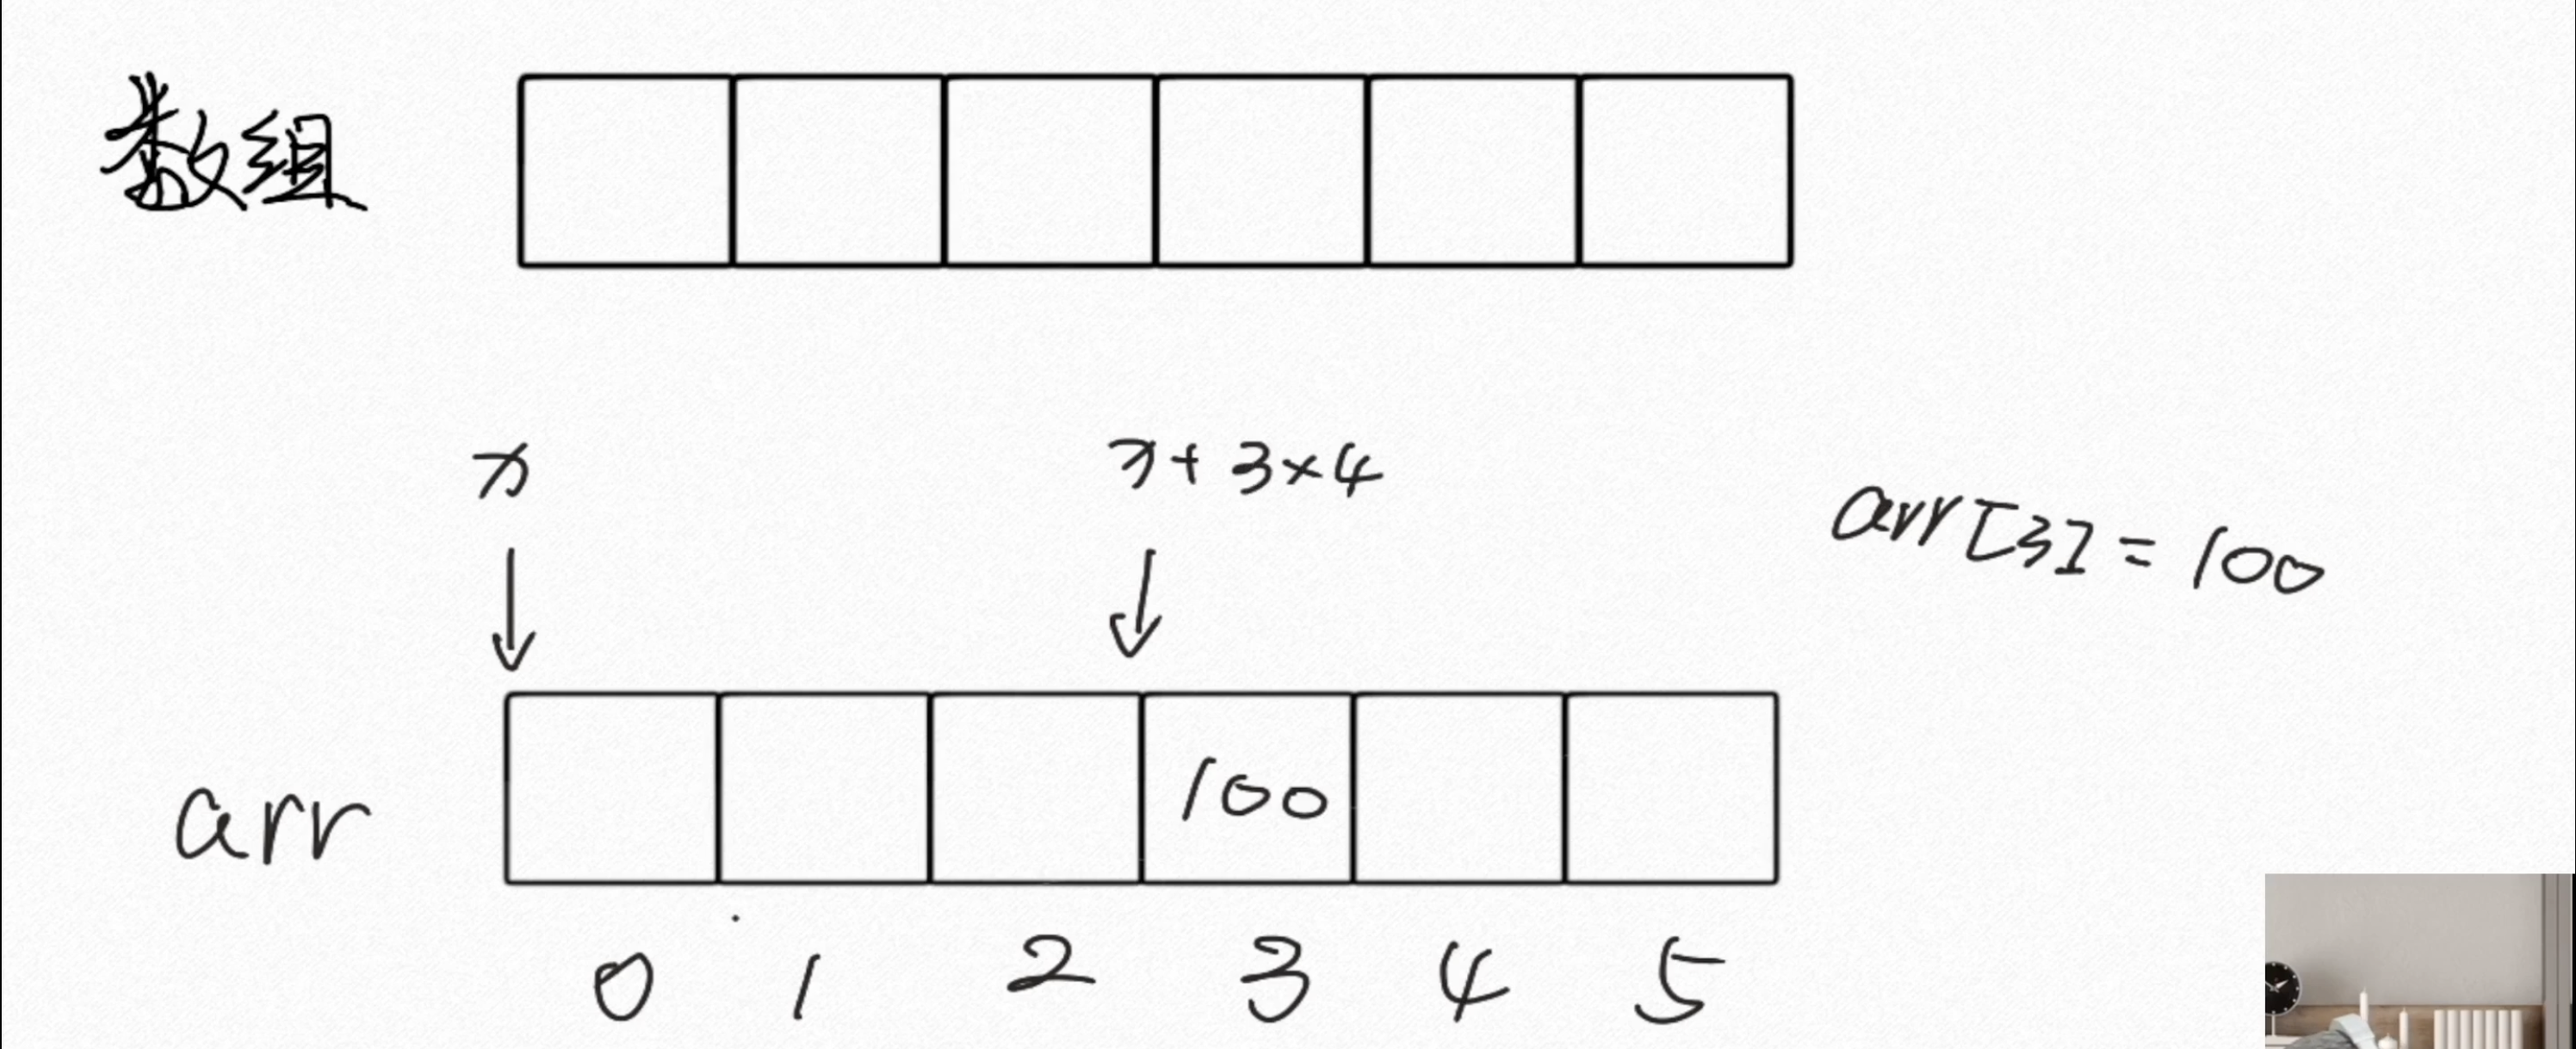 数组
x
x+3×4
arr[3]=100
arr
100
0 1 2 3 4 5